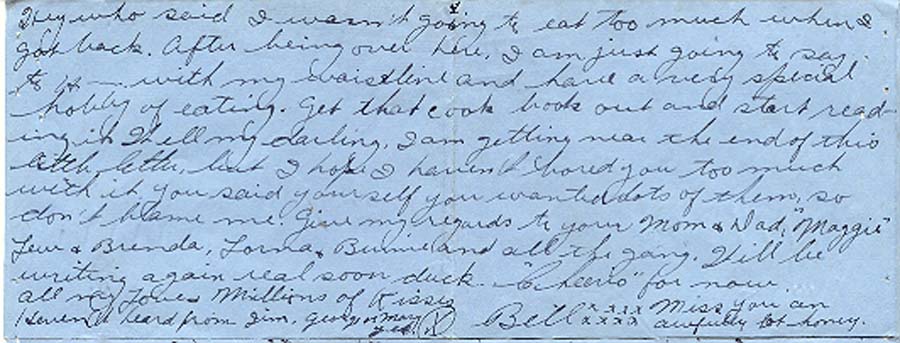 Hey who said I wasn't going to eat too much when I
got back. After being over here, I am just going to say
to h— with my waistline and have a very special
hobby of eating. Get that cook book out and start read-
ing it. Well my darling, I am getting near the end of this
little letter, but I hope I haven't bored you too much
with it you said yourself you wanted lots of them, so
don't blame me. Give my regards to your Mom & Dad, "Maggie"
Lew & Brenda, Lorna, Bunnie and all the gang. I'll be
writing again real soon duck. "Cheerio" for now.
all my Love & Millions of Kisses
Haven't heard from Jim, George or Mary yet. Bill xxxx xxxx Miss you an
awfully lot honey.